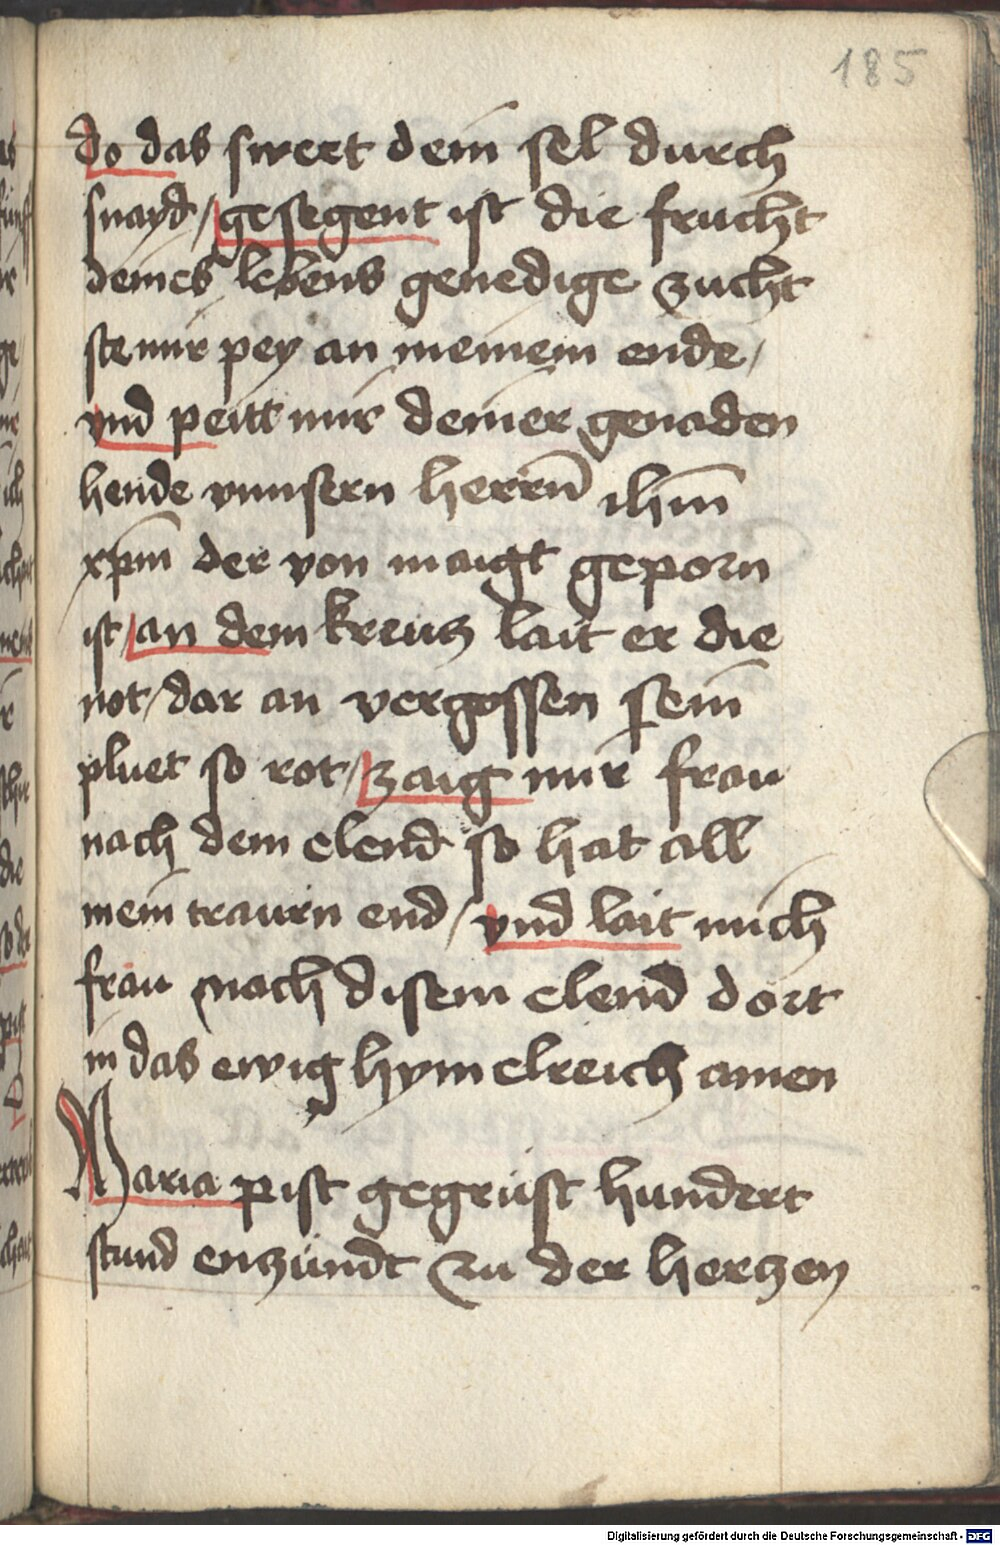 185
do das swert dein sel durch
snayd / gesegent ist die frucht
deines lebens genedige zucht
ste mir pey an meinem ende /
vnd peitt mir deiner genaden
hende vnnsern herrn̄ ihm̄
xpm̄ der von maigt geporn
ist / an dem kreutz lait er die
not / dar an vergossen sein
pluet so rot / zaig mir frau
nach dem elend so hat all
mein traurn end / vnd lait mich
frau nach disem elend dort
in das ewig hymelreich amen
Maria pist gegrüst hundert
stund enzündt in der herczen
Digitalisierung gefördert durch die Deutsche Forschungsgemeinschaft - DFG